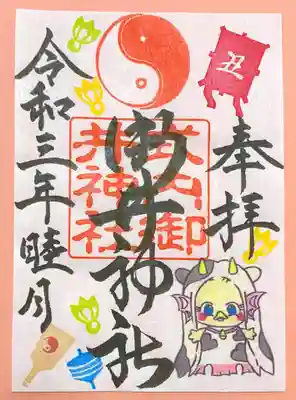 丑
奉拝
御井神社
式内御
井神社
令和三年睦月